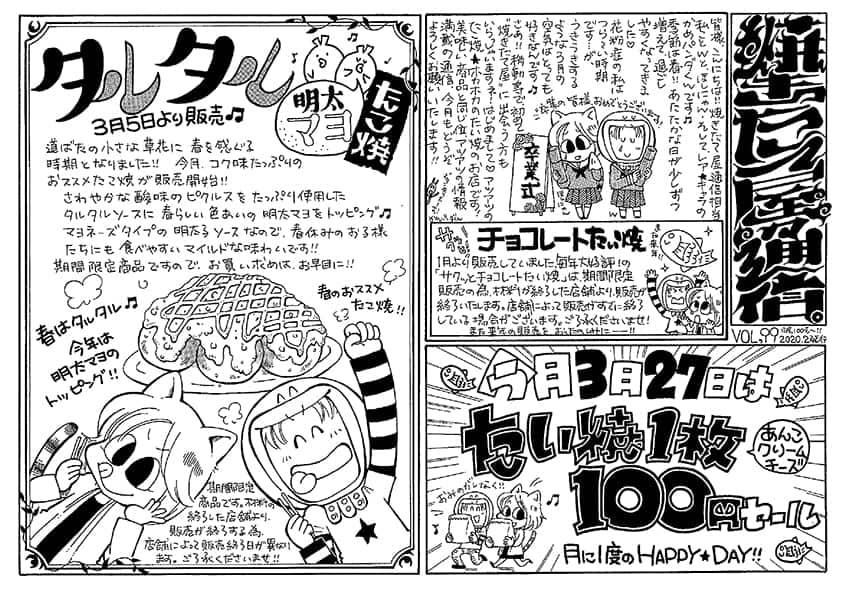 焼きたて屋通信
VOL.99
2020.2.28発行
皆様、こんにちは!!焼きたて屋通信担当
季節は春!!あたたかな日が少しずつ
増えて、過ごし
やすくなってきま
した♡
花粉症の私は
つらい時期
ですが…
好きなんです♪
さあ!!移動車で初めて
焼きたて屋に出会う方も
いらっしゃいますネー はじめまして♡アツアツの
たこ焼★ホカホカのたい焼のお店です!
美味しい商品と同じ位アツアツの情報
満載の通信、今月もどうぞ
よろしくお願いいたします!
卒業生の皆様、おめでとうございます!
卒業式
サクッと
チョコレートたい焼
1月より販売していました毎年大好評!の
「サクッとチョコレートたい焼」は、期間限定
販売の為、材料が終了した店舗より、販売
が終了いたします。店舗によって販売がすでに終了
している場合がございます。ご了承くださいませ!
また来年の販売を、お楽しみにーー!!
タルタル
明太
マヨ
たこ焼
3月5日より販売♫
道ばたの小さな草花に 春を感じる
時期となりました!! 今月、コク味たっぷりの
おススメたこ焼が販売開始!!
さわやかな酸味のピクルスをたっぷり使用した
タルタルソースに春らしい色あいの明太マヨをトッピング♪
マヨネーズタイプの明太子ソースなので、春休みのお子様
たちにも食べやすいマイルドな味わいです!!
期間限定商品ですので、お買い求めは、お早目に!!
春はタルタル♪
今年は
明太マヨの
トッピング!!
春のおススメ
たこ焼!!
期間限定
商品です。材料の
終了した店舗より、
販売が終了する為、
店舗によって販売終了日が異なり
ます。ご了承くださいませ!!
今月3月27日は
たい焼1枚
100円セール
あんこ
クリーム
チーズ
月に1度のHAPPY★DAY!!